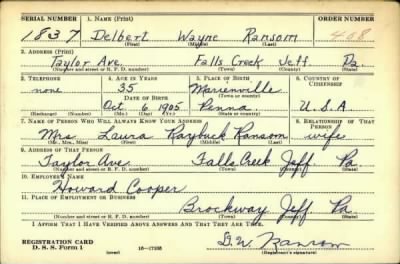 SERIAL NUMBER 1. NAME (Print) ORDER NUMBER
1837 Delbert Wayne Ransom 408
(First) (Middle) (Last)
2. ADDRESS (Print)
Taylor Ave. Falls Creek Jeff Pa.
(Number and street or R. F. D. number) (Town) (County) (State)
3. TELEPHONE 4. AGE IN YEARS 5. PLACE OF BIRTH 6. COUNTRY OF CITIZENSHIP
none 35 Marienville
DATE OF BIRTH (Town or county)
Oct 6 1905 Penna U.S.A.
(Exchange) (Number) (Mo.) (Day) (Yr.) (State or country)
7. NAME OF PERSON WHO WILL ALWAYS KNOW YOUR ADDRESS 8. RELATIONSHIP OF THAT PERSON
Mrs. Laura Raybuck Ransom wife
(Mr., Mrs., Miss) (First) (Middle) (Last)
9. ADDRESS OF THAT PERSON
Taylor Ave. Falls Creek Jeff Pa
(Number and street or R. F. D. number) (Town) (County) (State)
10. EMPLOYER'S NAME
Howard Cooper
11. PLACE OF EMPLOYMENT OR BUSINESS
Brockway Jeff Pa.
(Number and street or R. F. D. number) (Town) (County) (State)
I AFFIRM THAT I HAVE VERIFIED ABOVE ANSWERS AND THAT THEY ARE TRUE.
REGISTRATION CARD
D. S. S. Form 1 (over) 16-17105 D.W. Ransom
(Registrant's signature)